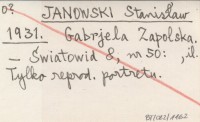 JANOWSKI Stanisław
1931. Gabrjela Zapolska.
— Światowid 8, nr 50: , il.
Tylko reprod. portretu.